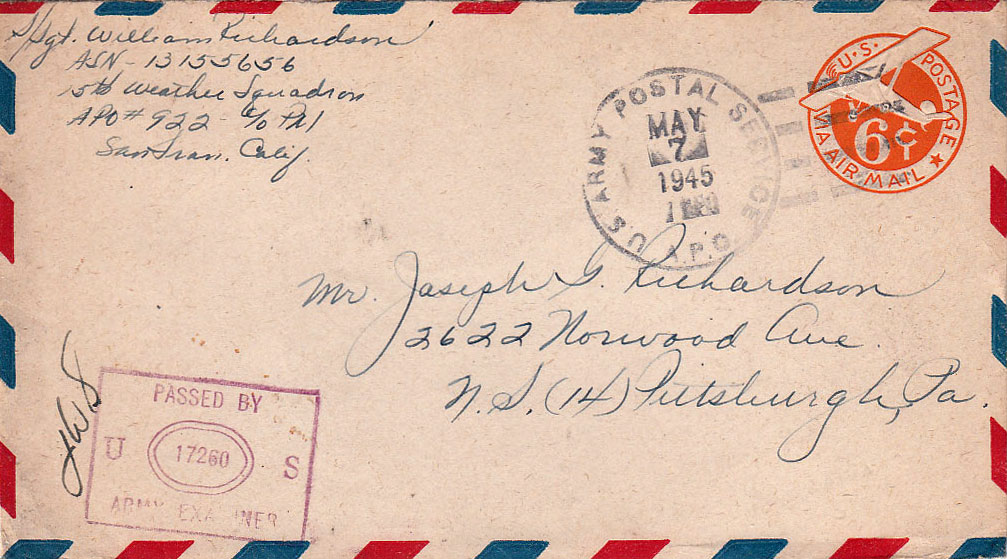 S/Sgt. William Richardson
ASN - 13155656
5th Weather Squadron
APO # 922 - c/o PM
San Fran. Calif.
U.S. POSTAGE
VIA AIR MAIL
6¢
U.S. ARMY POSTAL SERVICE
MAY
7
1945
A.P.O.
Mr. Joseph G. Richardson
2622 Norwood Ave.
N.S. (14) Pittsburgh, Pa.
PASSED BY
U 17260 S
ARMY EXAMINER